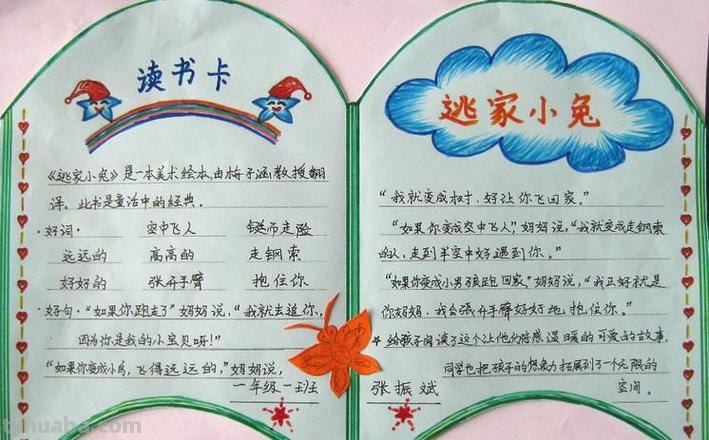 读书卡
《逃家小兔》是一本美术绘本,由梅子涵教授翻
译。此书是童话中的经典。
·好词: 空中飞人 铤而走险
远远的 高高的 走钢索
好好的 张开手臂 抱住你
·好句:“如果你跑走了”妈妈说,“我就去追你,
因为你是我的小宝贝呀!”
“如果你变成小鸟,飞得远远的,”妈妈说,
一年级一班
逃家小兔
“我就变成树,好让你飞回家。”
“如果你变成空中飞人,”妈妈说,“我就变成走钢索
的人,走到半空中好遇到你。”
“如果你变成小男孩跑回家,”妈妈说,“我正好就是
你妈妈,我会张开手臂好好地抱住你。”
☆给孩子阅读了这个让他们倍感温暖的可爱的故事,
同学也把孩子的想象力拓展到了一个无限的
张振斌 空间。